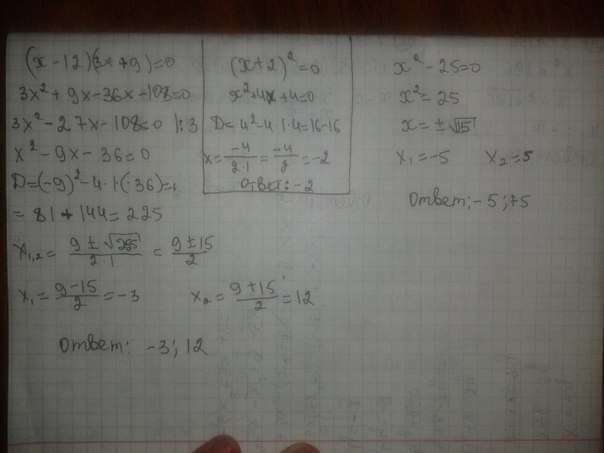 (x-12)(3x+9)=0
3x²+9x-36x+108=0
3x²-27x-108=0 |:3
x²-9x-36=0
D=(-9)²-4·1·(-36)=
=81+144=225
x₁,₂= (9±√225)/(2·1) = (9±15)/2
x₁= (9-15)/2 =-3 x₂= (9+15)/2 =12
Ответ: -3; 12
(x+2)²=0
x²+4x+4=0
D=4²-4·1·4=16-16
x= -4/(2·1) = -4/2 =-2
Ответ: -2
x²-25=0
x²=25
x=±√15
x₁=-5 x₂=5
Ответ: -5; +5